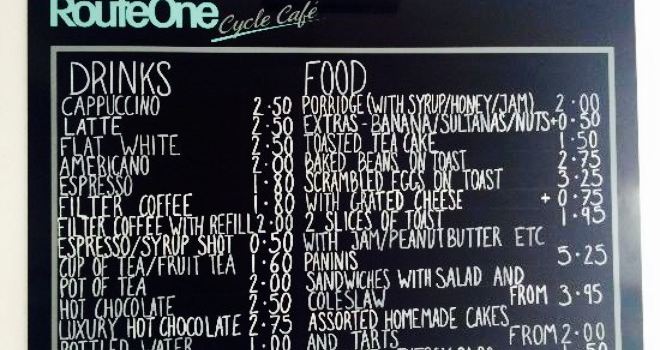 RouteOne
Cycle Café
DRINKS
CAPPUCCINO 2.50
LATTE 2.50
FLAT WHITE 2.50
AMERICANO 2.00
ESPRESSO 1.80
FILTER COFFEE 1.80
FILTER COFFEE WITH REFILL 2.00
ESPRESSO/SYRUP SHOT 0.50
CUP OF TEA/FRUIT TEA 1.60
POT OF TEA 2.00
HOT CHOCOLATE 2.50
LUXURY HOT CHOCOLATE 2.75
BOTTLED WATER 1.00
FOOD
PORRIDGE (WITH SYRUP/HONEY/JAM) 2.00
EXTRAS - BANANA/SULTANAS/NUTS +0.50
TOASTED TEACAKE 1.50
BAKED BEANS ON TOAST 2.75
SCRAMBLED EGGS ON TOAST 3.25
WITH GRATED CHEESE + 0.75
2 SLICES OF TOAST 1.95
WITH JAM/PEANUTBUTTER ETC
PANINIS 5.25
SANDWICHES WITH SALAD AND
COLESLAW FROM 3.95
ASSORTED HOMEMADE CAKES
AND TARTS FROM 2.00